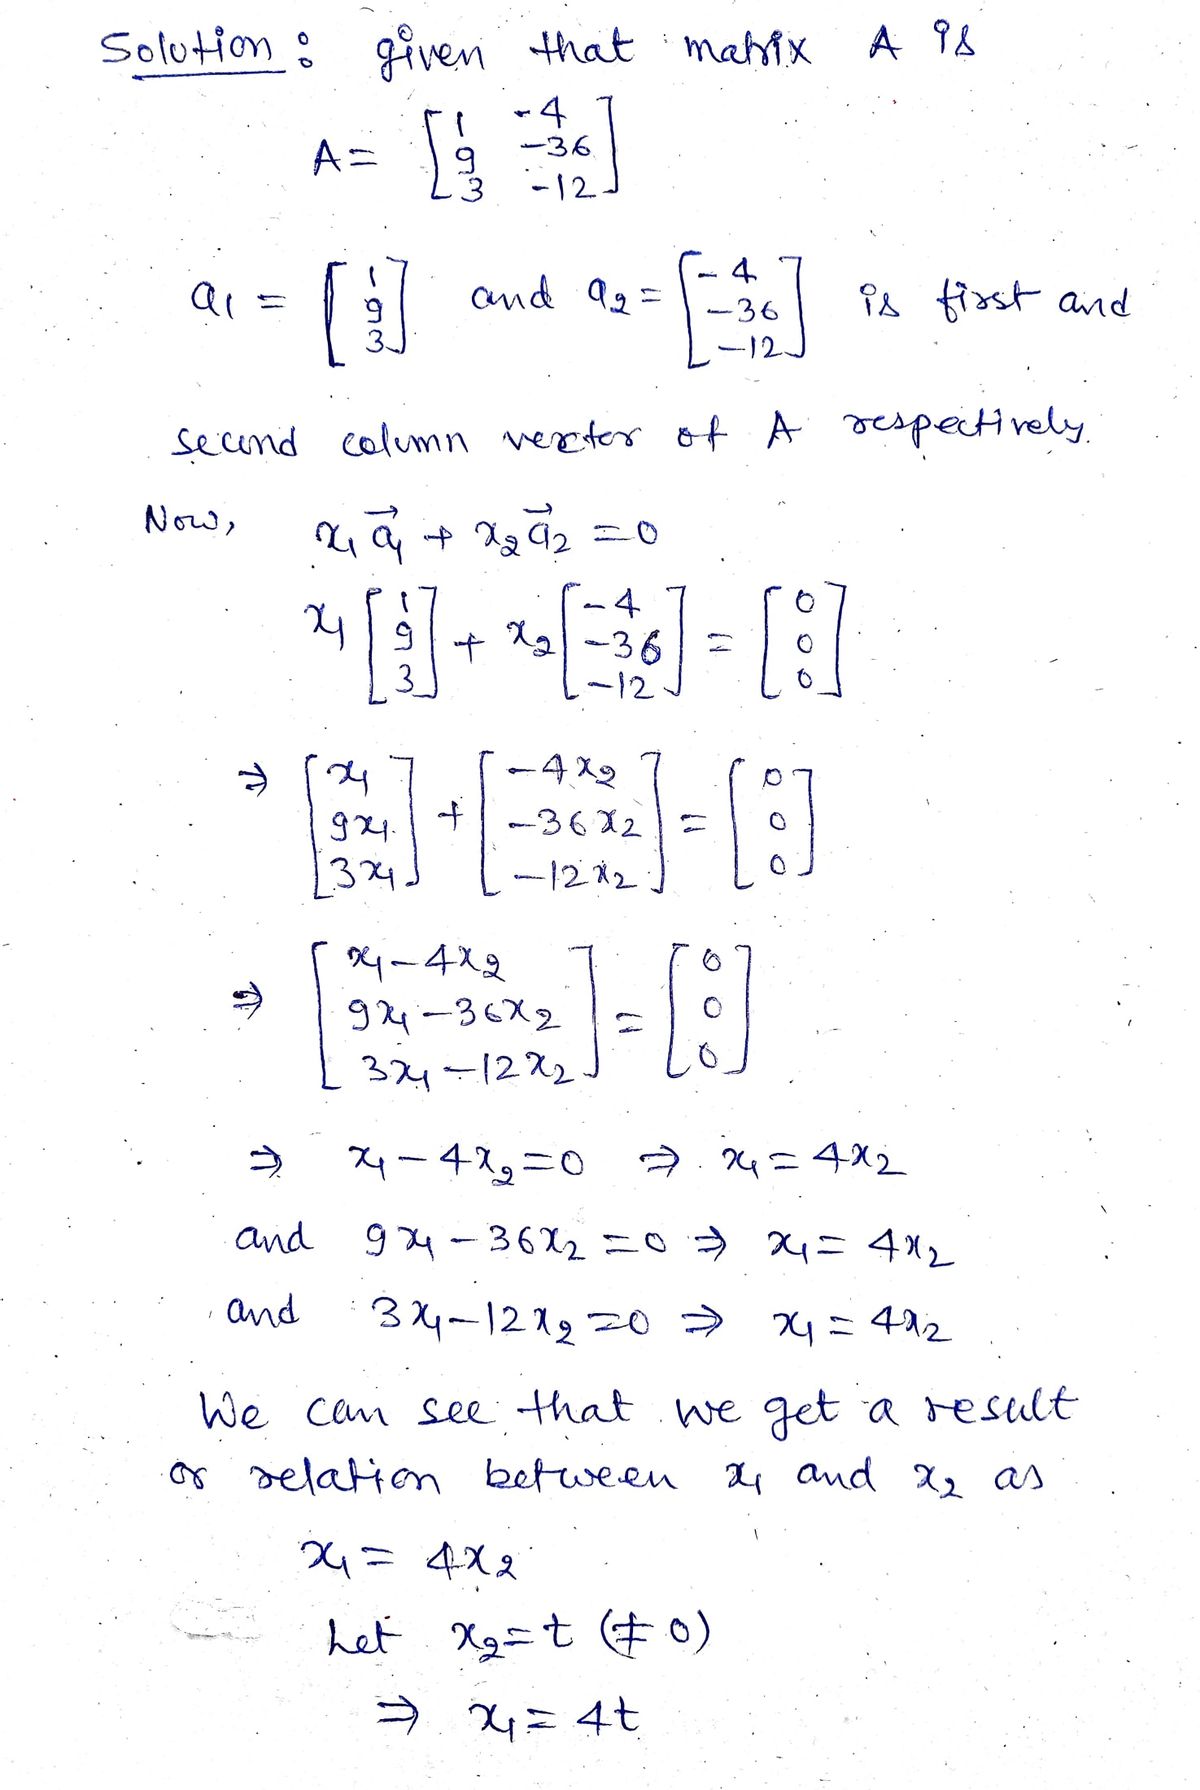 Solution : given that matrix A is
A = [ 1 -4
9 -36
3 -12 ]
a1 = [ 1
9
3 ] and a2 = [ -4
-36
-12 ] is first and
second column vector of A respectively.
Now, x1 a⃗1 + x2 a⃗2 = 0
x1 [ 1
9
3 ] + x2 [ -4
-36
-12 ] = [ 0
0
0 ]
⇒ [ x1
9x1
3x1 ] + [ -4x2
-36x2
-12x2 ] = [ 0
0
0 ]
⇒ [ x1 - 4x2
9x1 - 36x2
3x1 - 12x2 ] = [ 0
0
0 ]
⇒ x1 - 4x2 = 0 ⇒ x1 = 4x2
and 9x1 - 36x2 = 0 ⇒ x1 = 4x2
and 3x1 - 12x2 = 0 ⇒ x1 = 4x2
We can see that we get a result
or relation between x1 and x2 as
x1 = 4x2
Let x2 = t (≠ 0)
⇒ x1 = 4t